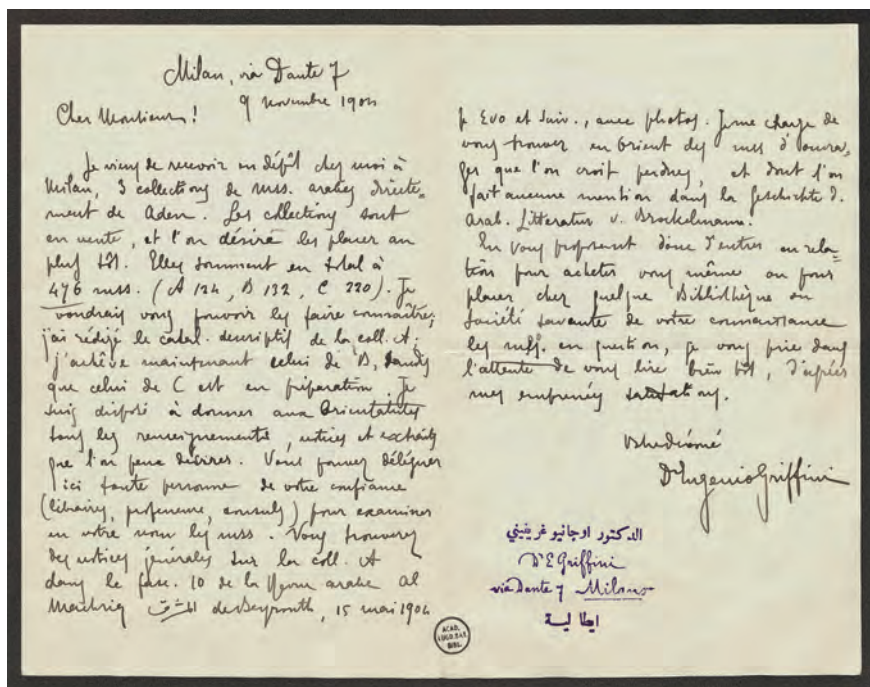 Milan, via Dante 7
9 novembre 1904
Cher Monsieur!
Je viens de recevoir en dépôt chez moi à
Milan, 3 collections de mss. arabes directe-
ment de Aden. Les collections sont
en vente, et l'on désire les placer au
plus tôt. Elles somment en total à
476 mss. (A 124, B 132, C 220). Je
voudrais vous pouvoir les faire connaître;
j'ai rédigé le catal. descriptif de la coll. A;
j'achève maintenant celui de B, tandis
que celui de C est en préparation. Je
suis disposé à donner aux Orientalistes
tous les renseignements, notices et extraits
que l'on peut désirer. Vous pouvez déléguer
ici toute personne de votre confiance
(libraires, professeurs, consuls) pour examiner
en votre nom les mss. Vous trouverez
des notices générales sur la coll. A
dans le fasc. 10 de la Revue arabe al
Machriq المشرق de Beyrouth, 15 mai 1904
p et suiv., avec photos. Je me charge de
vous trouver en Orient des mss d'ouvra-
ges que l'on croit perdus, et dont l'on
fait aucune mention dans la Geschichte d.
Arab. Litteratur v. Brockelmann.
En vous proposant donc d'entrer en rela-
tions pour acheter vous même ou pour
placer chez quelque Bibliothèque ou
Société savante de votre connaissance
les mss. en question, je vous prie dans
l'attente de vous lire bien tôt, d'agréer
mes empressés salutations.
Votre dévoué
Dr Eugenio Griffini
الدكتور اوجانيو غريفيني
Dr E Griffini
via Dante 7 Milano
ايطالية
ACAD.
LUGD.BAT.
BIBL.